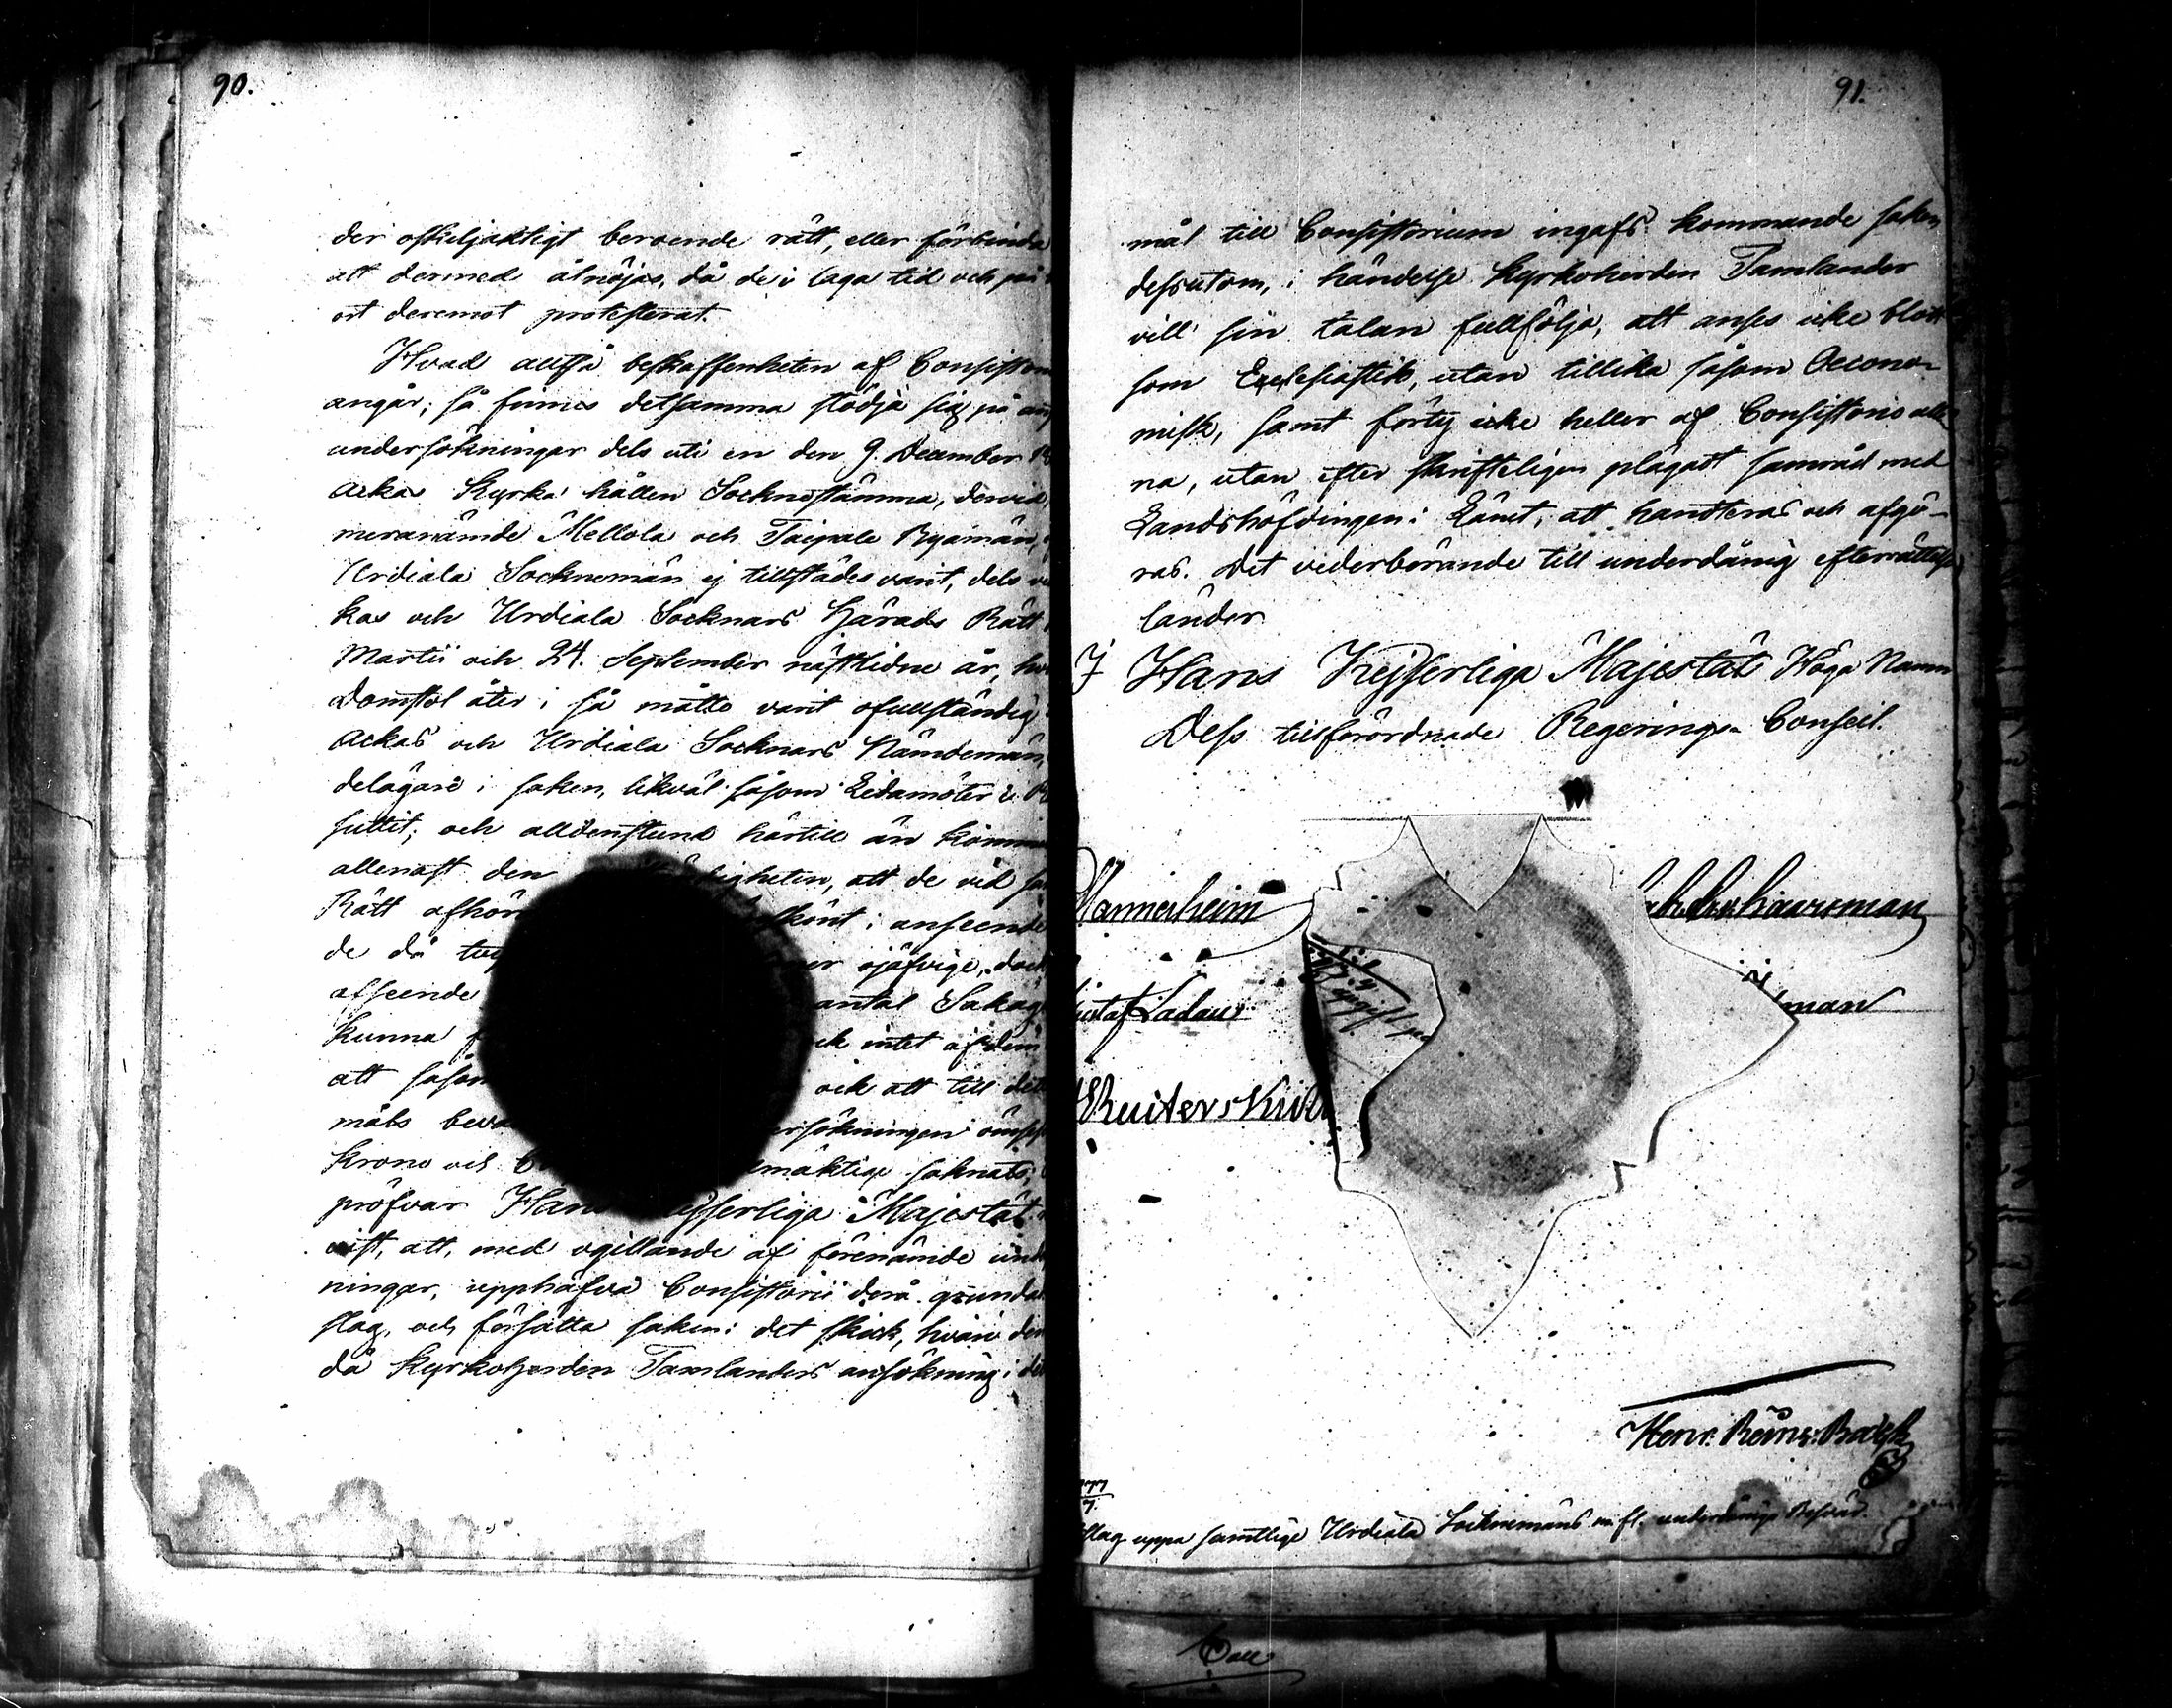 90.
der oskiljaktigt beroende rätt, eller förbinda
att dermed åtnöjas, då de i laga tid och på
ort deremot protesterat.
Hvad altså beskaffenheten af Consistor
angår; så finnes detsamma stödja sig på
undersökningar dels uti en den 9. December
Ackas Kyrka hållen Sockenstämma, dervid
meranämde Mellola och Taipale Byamän,
Urdiala Socknemän ej tillstädes varit, dels
kas och Urdiala Socknars Härads Rätt
Martii och 24. September nästledne år,
Domstol åter i så måtto varit ofullständig
Ackas och Urdiala Socknars Nämndemän,
delägare i saken, likväl såsom Ledamöter i
suttit; och alldenstund härtill än komm
allenast den igheten, att de vid
Rätt afhör skönt i anseende
de då ojäfvige, dock
afseende antal Sakäg
kunna ck intet af dem
att såsom och att till det
måls beva ersökningen
Krono och mäktige saknats;
pröfvar Hans jserliga Majestät
vist, att, med ogillande af förenämde und
ningar, upphäfva Consistorii derå grunda
slag, och försätta saken i det skick, hvari den
då Kyrkoherden Tamlanders ansökning i
91.
mål till Consistorium ingafs kommande saken,
dessutom, i händelse Kyrkoherden Tamlander
vill sin talan fullfölja, att anses icke blott
som Ecclesiastik, utan tillika såsom Oecono-
misk, samt förty icke heller af Consistorio alle
na, utan efter skrifteligen plägadt samråd med
Landshöfdingen i Länet, att handteras och afgö-
ras. Det vederbörande till underdånig efterrättelse
länder.
I Hans Kejserliga Majestäts Höga Namn
Dess tillförordnade Regerings-Conseil.
Mannerheim
haurman
ustaf Ladau
man
Reuterskiö
Henr. Reinh. Balck
777
7
slag uppå samtlige Urdiala Socknemäns m. fl. underdånige Besvär.